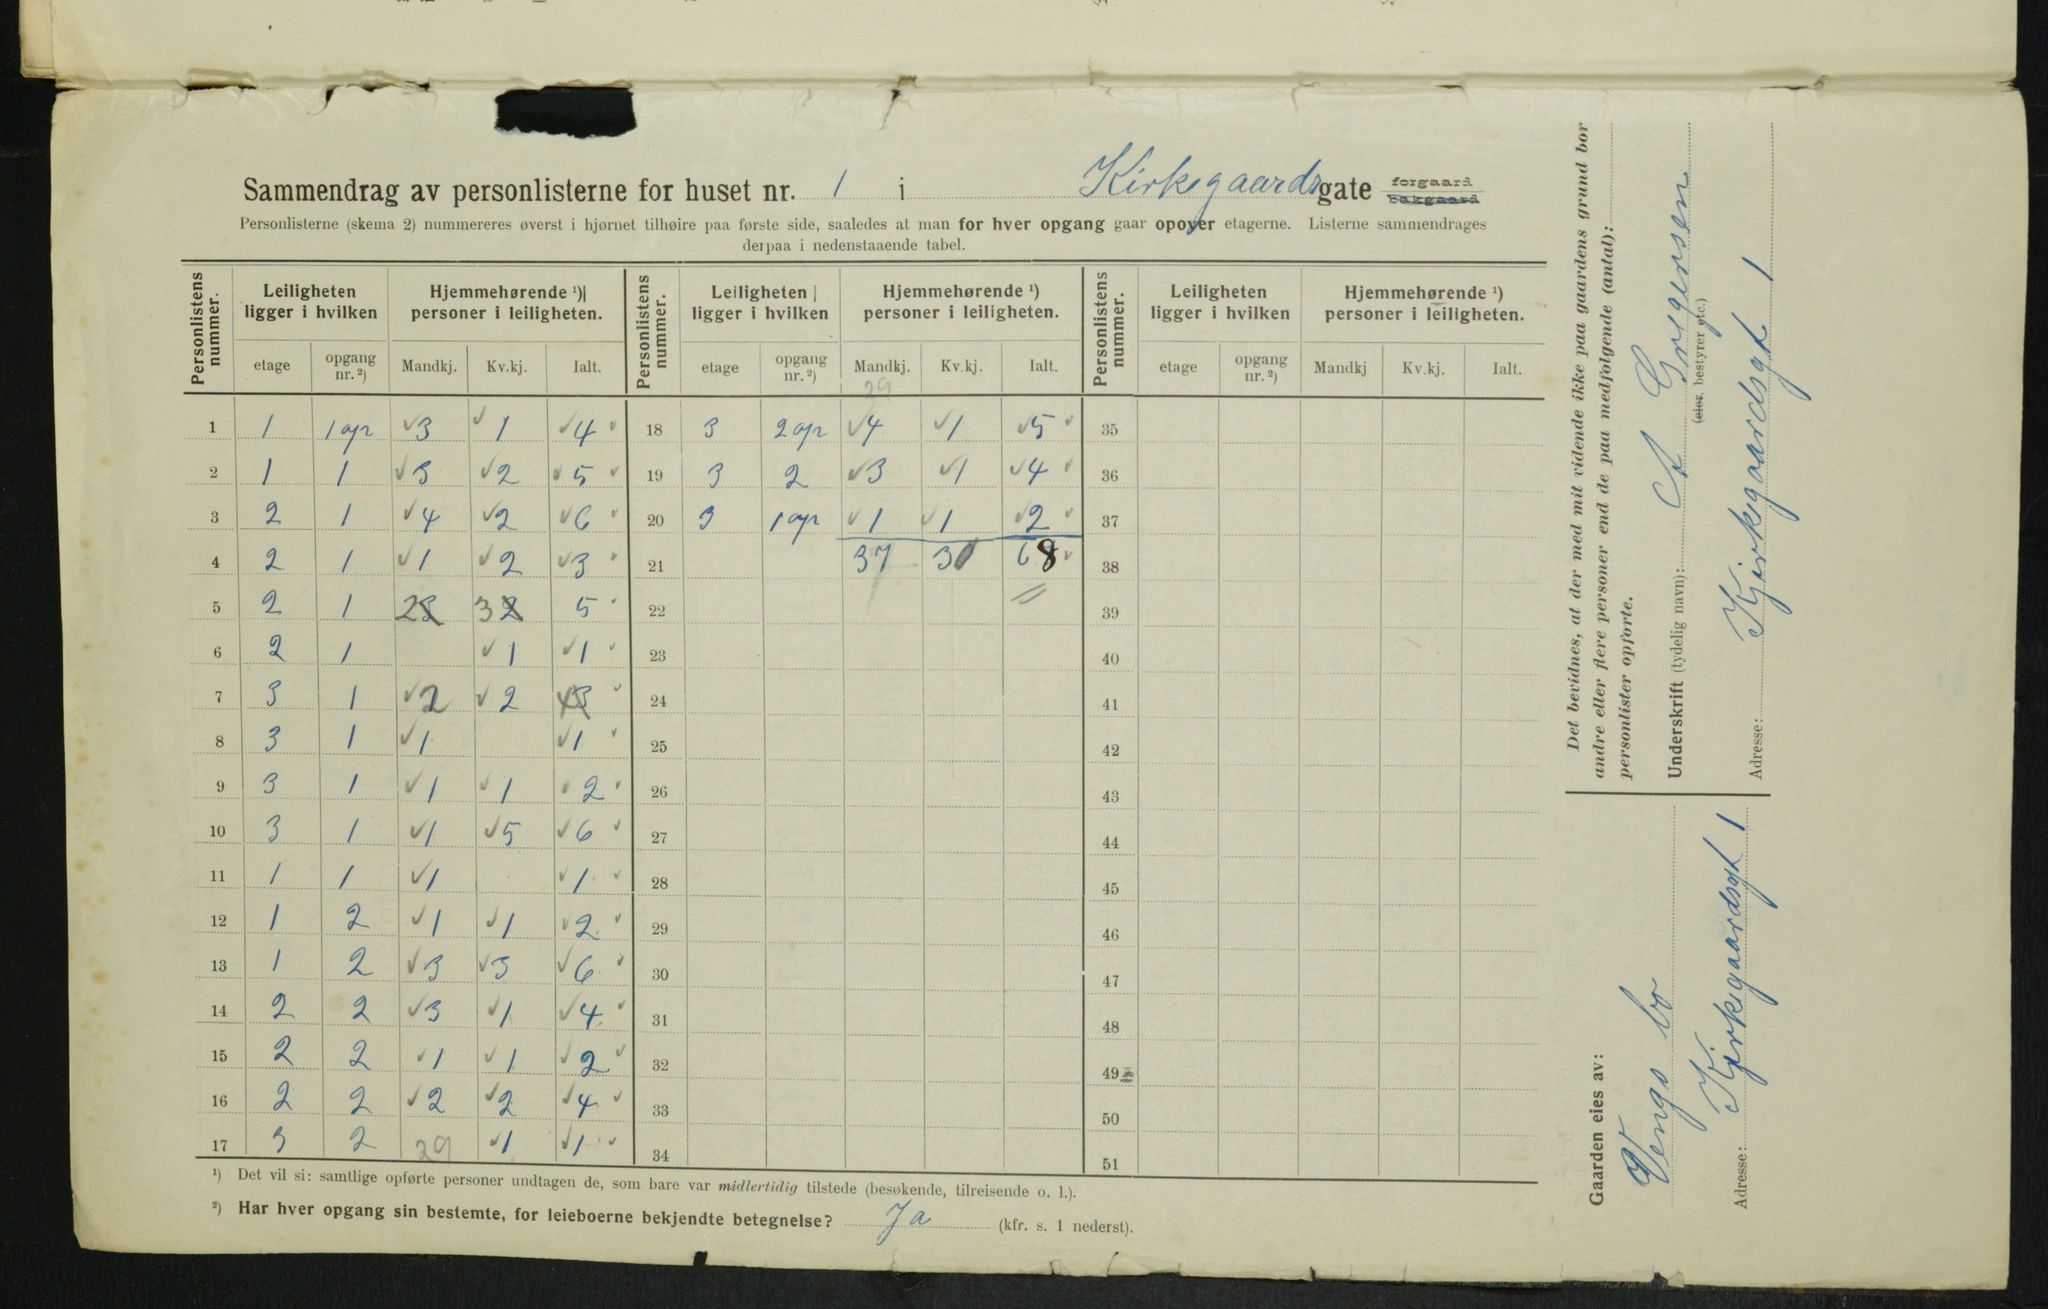 Sammendrag av personlisterne for huset nr. 1 i Kirkegaardsgate forgaard bakgaard
Personlisterne (skema 2) nummereres øverst i hjørnet tilhøire paa første side, saaledes at man for hver opgang gaar opover etagerne. Listerne sammendrages
derpaa i nedenstaaende tabel.
Personlistens nummer. Leiligheten ligger i hvilken Hjemmehørende ¹) personer i leiligheten. Personlistens nummer. Leiligheten ligger i hvilken Hjemmehørende ¹) personer i leiligheten. Personlistens nummer. Leiligheten ligger i hvilken Hjemmehørende ¹) personer i leiligheten.
etage opgang nr.²) Mandkj. Kv.kj. Ialt. etage opgang nr.²) Mandkj. Kv.kj. Ialt. etage opgang nr.²) Mandkj Kv.kj. Ialt.
29
1 1 1 op 3 1 4 18 3 2 op 4 1 5 35
2 1 1 3 2 5 19 3 2 3 1 4 36
3 2 1 4 2 6 20 3 1 op 1 1 2 37
4 2 1 1 2 3 21 37 38
5 2 1 2 3 3 2 5 22 39
6 2 1 1 1 23 40
7 3 1 2 2 4 3 24 41
8 3 1 1 1 25 42
9 3 1 1 1 2 26 43
10 3 1 1 5 6 27 44
11 1 1 1 1 28 45
12 1 2 1 1 2 29 46
13 1 2 3 3 6 30 47
14 2 2 3 1 4 31 48
15 2 2 1 1 2 32 49
16 2 2 2 2 4 33 50
17 3 2 29 1 1 34 51
¹) Det vil si: samtlige opførte personer undtagen de, som bare var midlertidig tilstede (besøkende, tilreisende o. l.).
²) Har hver opgang sin bestemte, for leieboerne bekjendte betegnelse? Ja (kfr. s. 1 nederst).
Det bevidnes, at der med mit vidende ikke paa gaardens grund bor
andre eller flere personer end de paa medfølgende (antal):
personlister opførte.
Underskrift (tydelig navn): A Gregersen
(eier, bestyrer etc.)
Adresse: Kjrkegaardsgt 1
Gaarden eies av:
Adresse: Kjrkegaardsgt 1